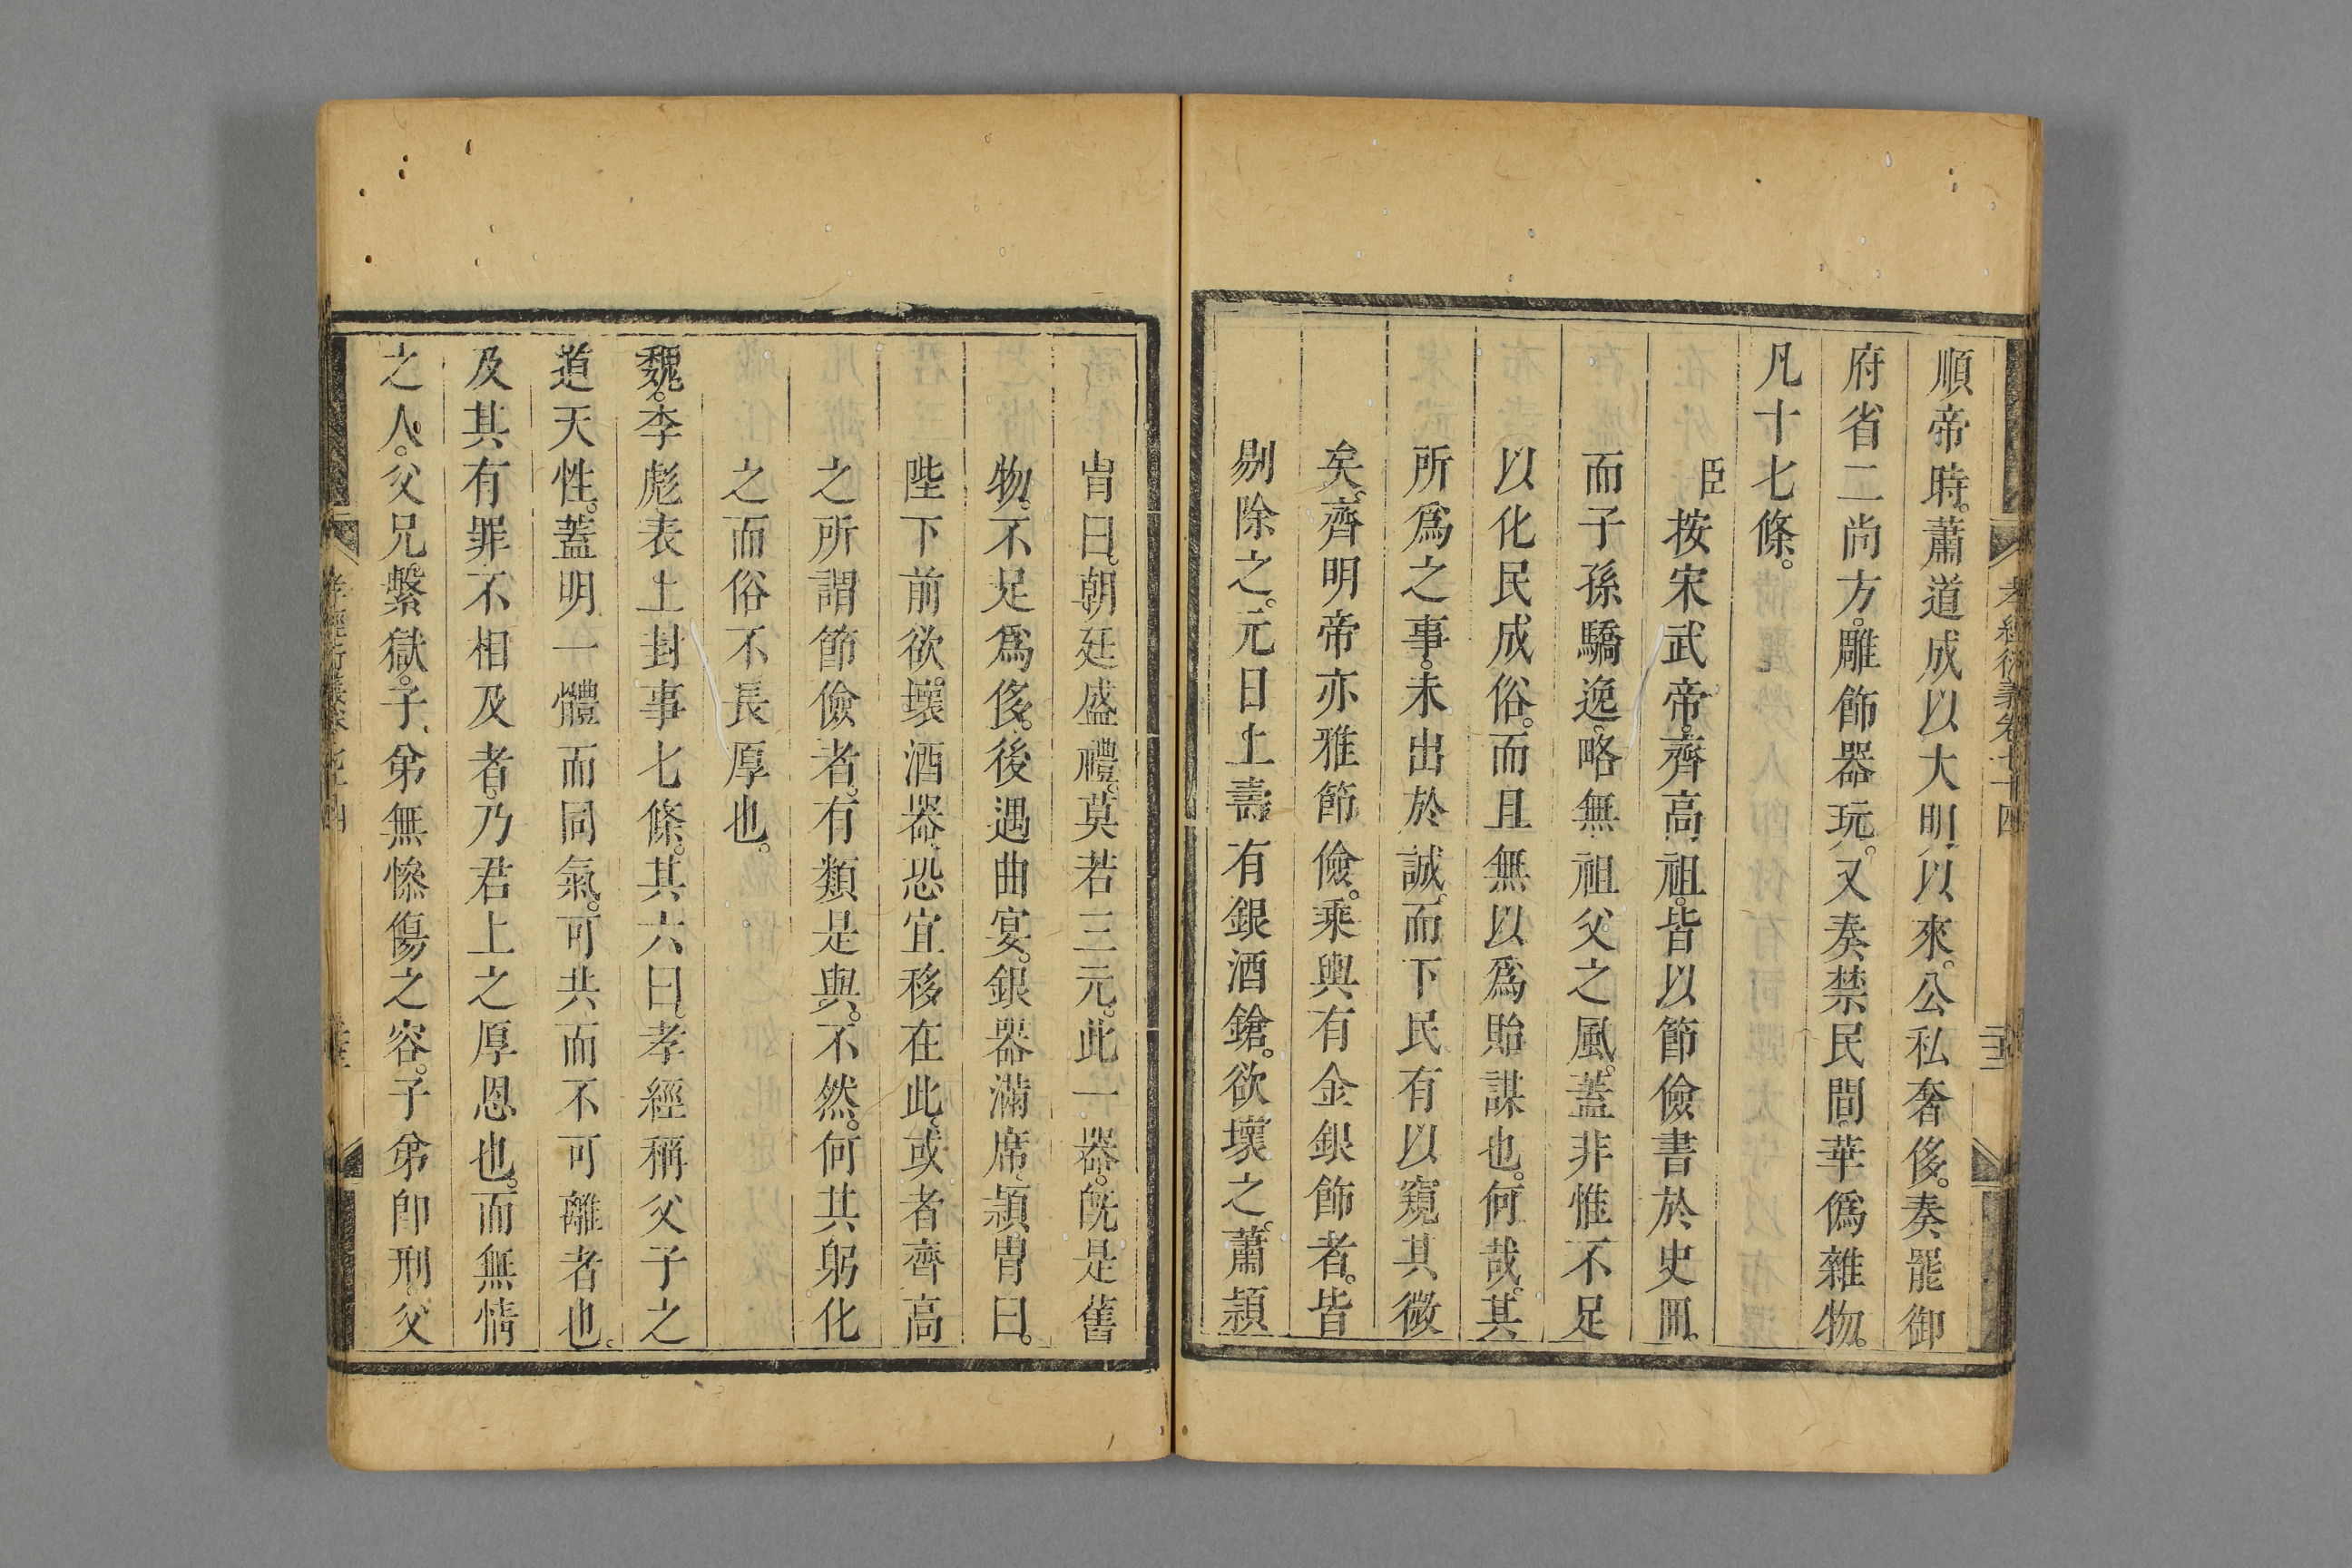 順帝時。蕭道成以大明以來。公私奢侈。奏罷御
府省二尚方。雕飾器玩。又奏禁民間。華僞雜物。
凡十七條。
臣按宋武帝。齊高祖。皆以節儉書於史冊。
而子孫驕逸。略無祖父之風。蓋非惟不足
以化民成俗。而且無以爲貽謀也。何哉。其
所爲之事。未出於誠。而下民有以窺其微
矣。齊明帝亦雅節儉。乘輿有金銀飾者。皆
剔除之。元日上壽有銀酒鎗。欲壞之。蕭潁
胄曰。朝廷盛禮。莫若三元。此一器。旣是舊
物。不足爲侈。後遇曲宴。銀器滿席。潁胄曰。
陛下前欲。壞酒器。恐宜移在此。或者齊高
之所謂節儉者。有類是與。不然。何其躬化
之而俗不長厚也。
魏。李彪表上封事七條。其六曰。孝經稱父子之
道天性。蓋明一體而同氣。可共而不可離者也。
及其有罪不相及者。乃君上之厚恩也。而無情
之人。父兄繫獄。子弟無慘傷之容。子弟即刑。父